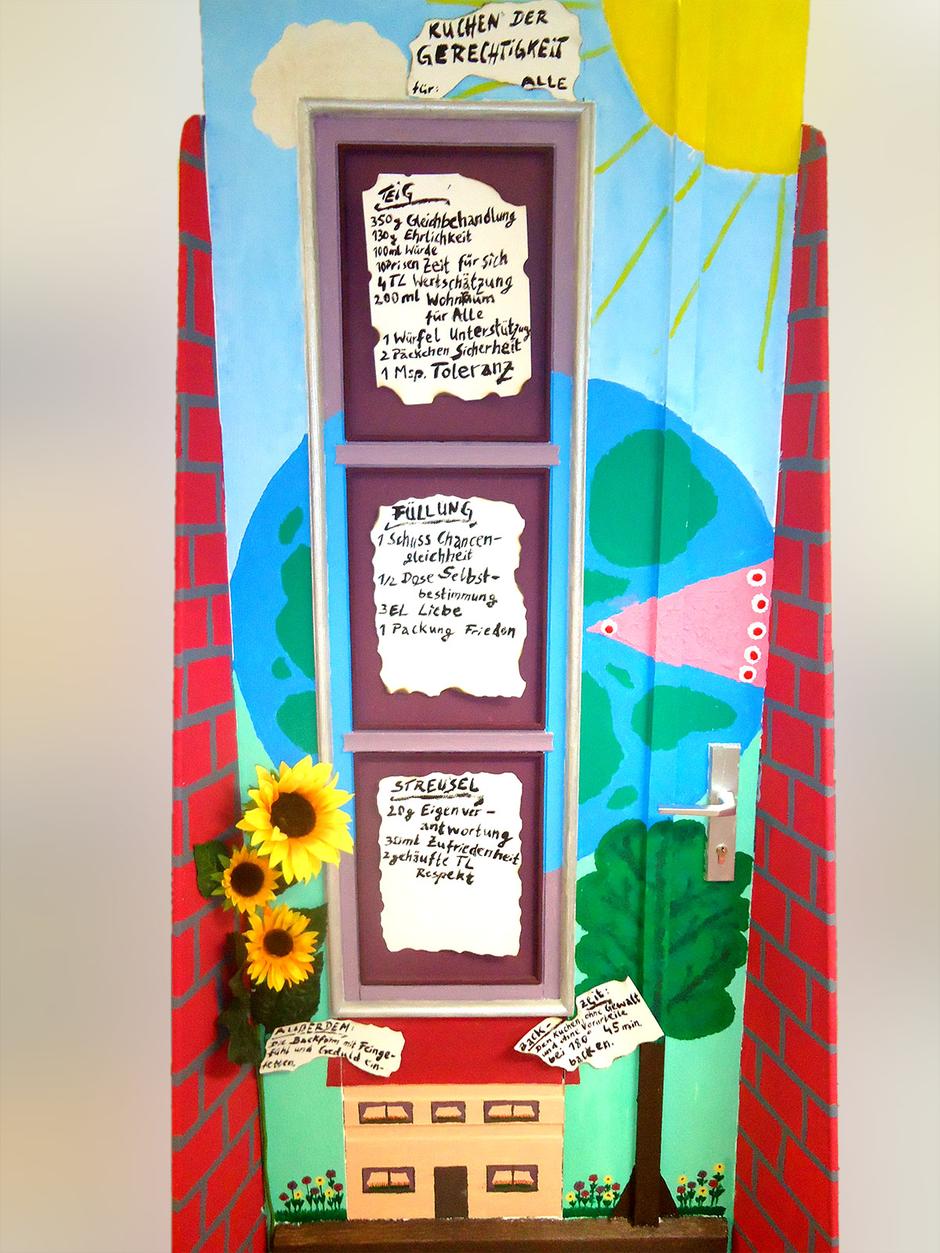 KUCHEN DER
GERECHTIGKEIT
für: ALLE
TEIG
350g Gleichbehandlung
130g Ehrlichkeit
100ml Würde
10Prisen Zeit für sich
4TL Wertschätzung
200ml Wohnraum
für Alle
1 Würfel Unterstützung
2 Päckchen Sicherheit
1 Msp. Toleranz
FÜLLUNG
1 Schuss Chancen-
gleichheit
1/2 Dose Selbst-
bestimmung
3EL Liebe
1 Packung Frieden
STREUSEL
20g Eigenver-
antwortung
30ml Zufriedenheit
2gehäufte TL
Respekt
AUßERDEM:
Die Backform mit Feinge-
fühl und Geduld ein-
fetten.
BACK-zeit:
Den Kuchen ohne Gewalt
und ohne Vorurteile
bei 180° 45 min.
backen.